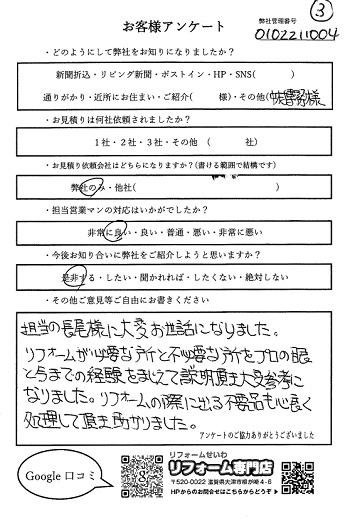 ③
お客様アンケート
弊社管理番号
0102211004
・どのようにして弊社をお知りになりましたか？
新聞折込・リビング新聞・ポストイン・HP・SNS( )
通りがかり・近所にお住まい・ご紹介( 様)・その他( 様
・お見積りは何社依頼されましたか？
1社・2社・3社・その他 ( 社)
・お見積り依頼会社はどちらになりますか？(書ける範囲で結構です)
弊社のみ・他社( )
・担当営業マンの対応はいかがでしたか？
非常に良い・良い・普通・悪い・非常に悪い
・今後お知り合いに弊社をご紹介しようと思いますか？
是非する・したい・聞かれれば・したくない・絶対しない
・その他ご意見等ご自由にお書きください
担当の長尾様に大変お世話になりました。
リフォームが必要な所と不必要な所をプロの眼
と今までの経験をまじえて説明頂き大変参考に
なりました。リフォームの際に出る不要品も心良く
処理して頂き助かりました。
アンケートのご協力ありがとうございました
Google 口コミ
リフォームせいわ
リフォーム専門店
〒520-0022 滋賀県大津市柳が崎4-6
HPからのお問合せはこちらからどうぞ